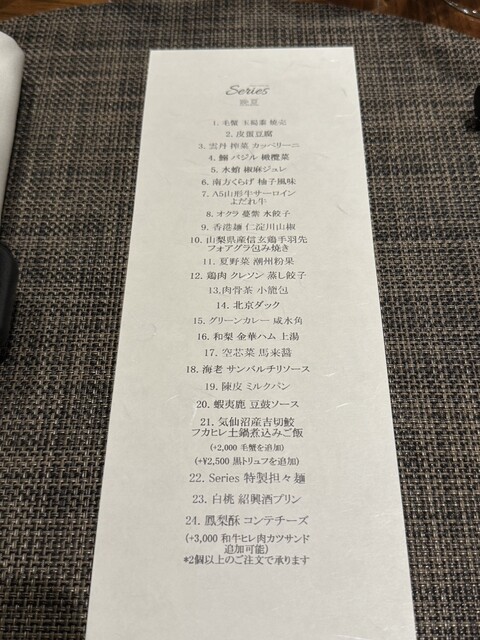 Series
晩夏
1. 毛蟹 玉蜀黍 焼売
2. 皮蛋豆腐
3. 雲丹 搾菜 カッペリーニ
4. 鰯 バジル 橄欖菜
5. 水蛸 椒麻ジュレ
6. 南方くらげ 柚子風味
7. A5山形牛サーロイン
よだれ牛
8. オクラ 蔓紫 水餃子
9. 香港麺 仁淀川山椒
10. 山梨県産信玄鶏手羽先
フォアグラ包み焼き
11. 夏野菜 潮州粉果
12. 鶏肉 クレソン 蒸し餃子
13.肉骨茶 小龍包
14. 北京ダック
15. グリーンカレー 咸水角
16. 和梨 金華ハム 上湯
17. 空芯菜 馬来醤
18. 海老 サンバルチリソース
19. 陳皮 ミルクパン
20. 蝦夷鹿 豆鼓ソース
21. 気仙沼産吉切鮫
フカヒレ土鍋煮込みご飯
(+2,000 毛蟹を追加)
(+¥2,500 黒トリュフを追加)
22. Series 特製担々麺
23. 白桃 紹興酒プリン
24. 鳳梨酥 コンテチーズ
(+3,000 和牛ヒレ肉カツサンド
追加可能)
*2個以上のご注文で承ります